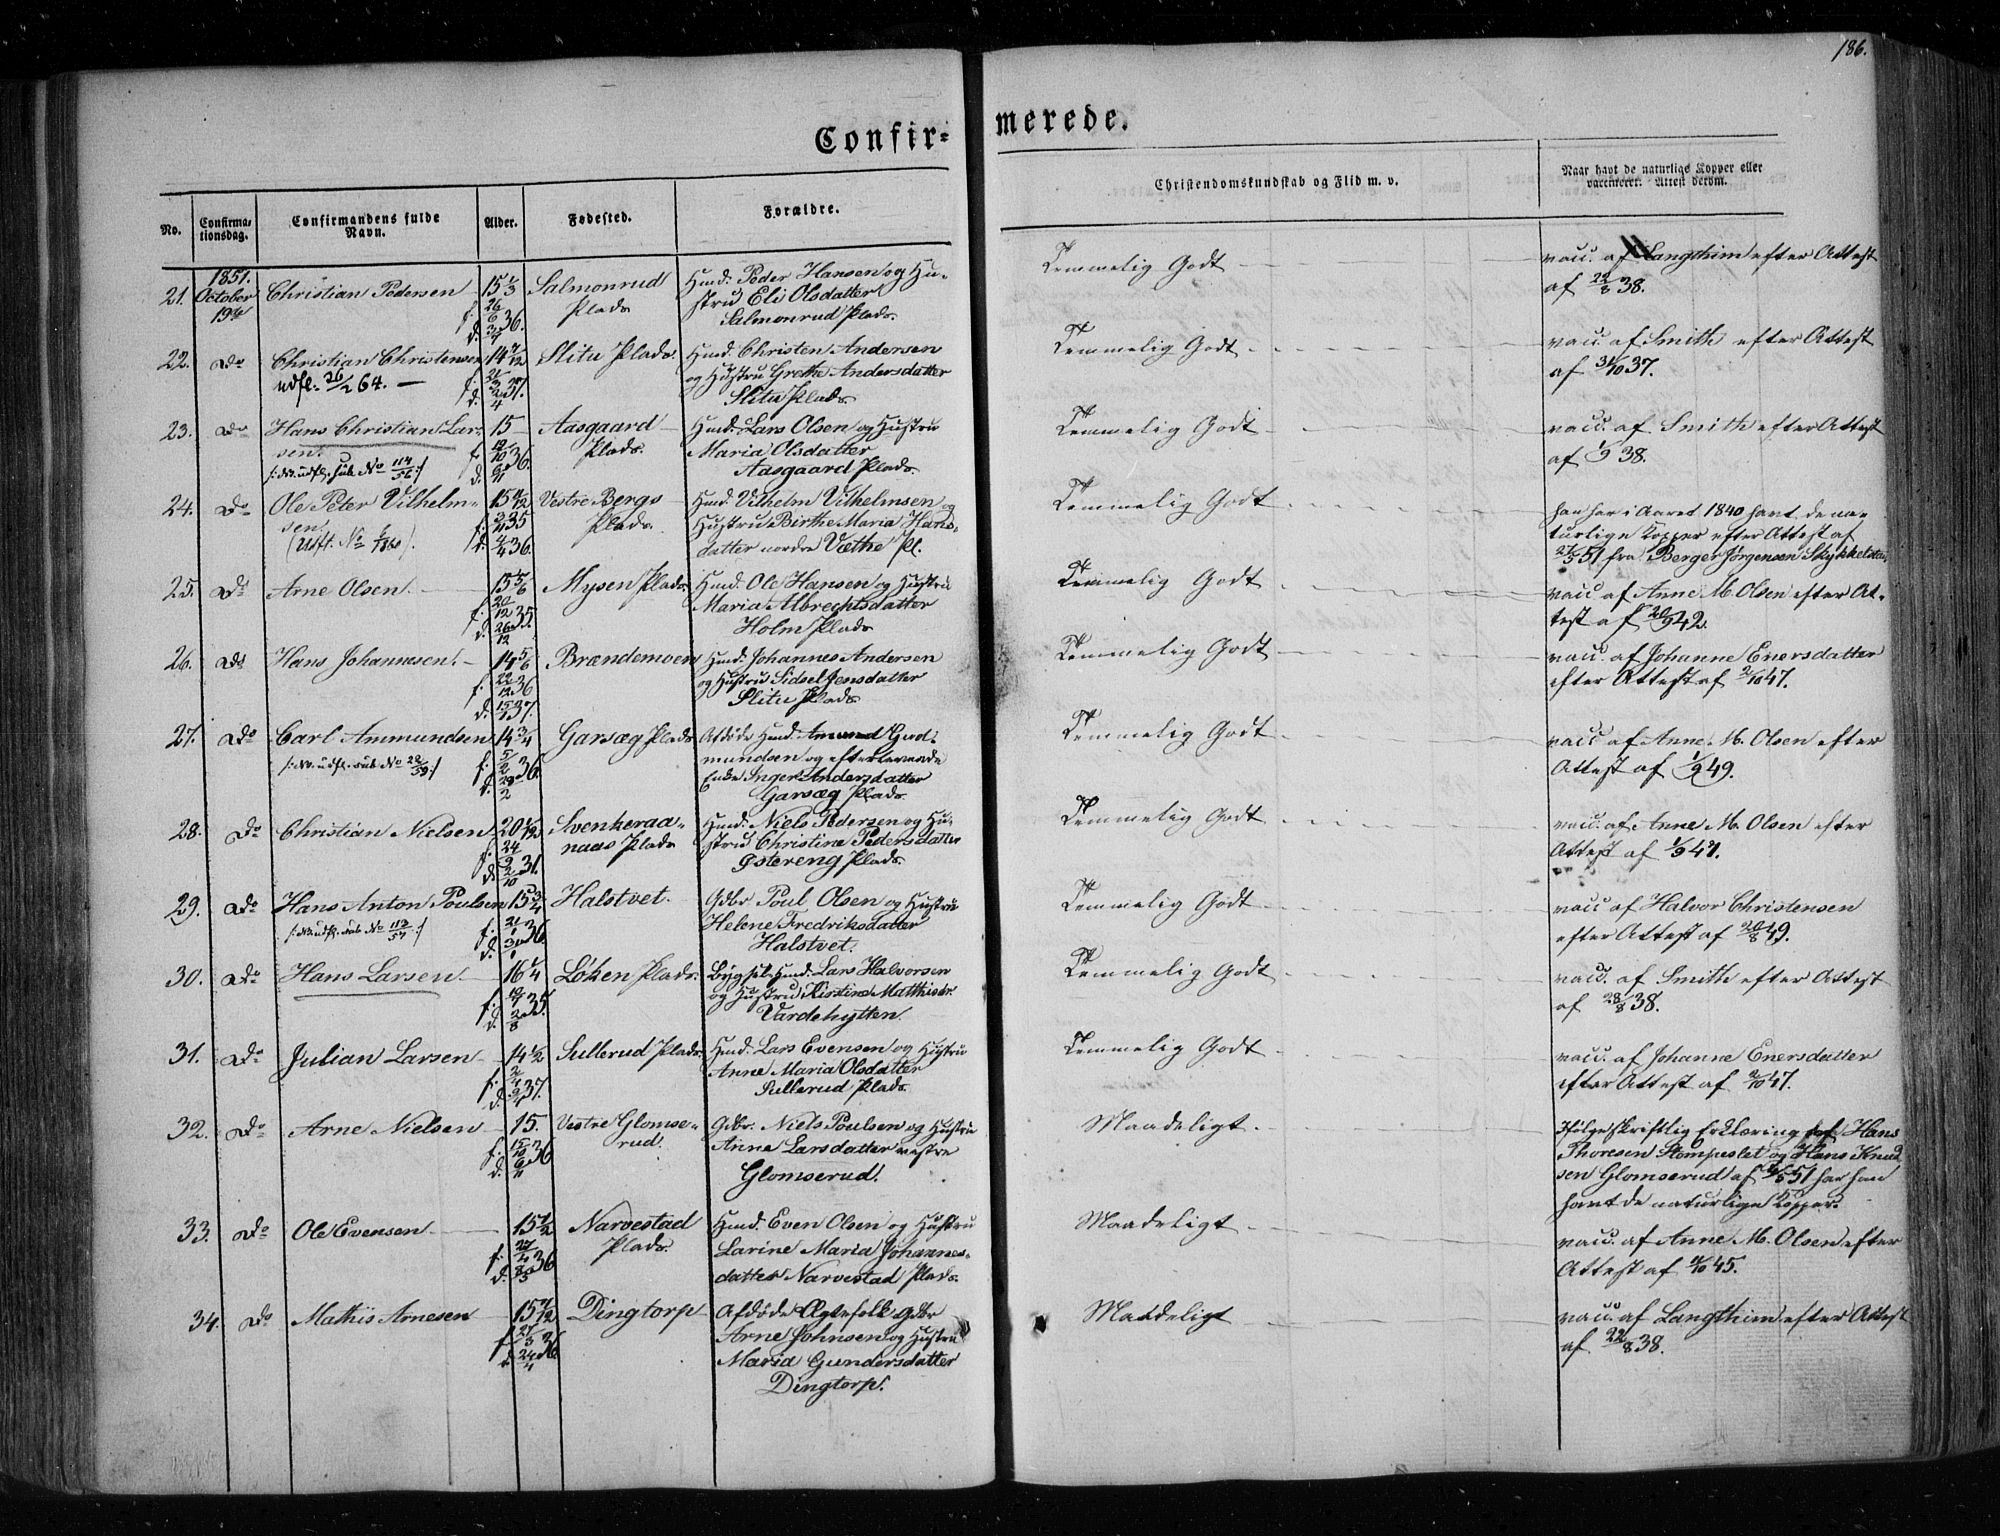 186.
Confir- merede.
No.
Confirma-
tionsdag.
Confirmandens fulde
Navn.
Alder.
Fødested.
Forældre.
Christendomskundskab og Flid m. v.
Naar havt de naturlige Kopper eller
vaccineret. Attest derom.
21. 1851. October 19de Christian Pedersen 15 1/3 Salmonrud Hmd. Peder Hansen og Hu-
f. 26/6 36. Plads stru Eli Olsdatter
d. 3/7 Salmonrud Plads.
Temmelig Godt vacc. af Langthim efter Attest
af 22/8 38.
22. Do Christian Christensen 14 7/12 Slitu Plads. Hmd. Christen Andersen
udfl. 26/2 64. — og Hustru Grethe Andersdatter
f. 21/3 37. Slitu Plads.
d. 2/4
Temmelig Godt vacc. af Smith efter Attest
af 31/10 37.
23. Do Hans Christian Lar- 15 Aasgaard Hmd. Lars Olsen og Hustru
sen. Plads. Maria Olsdatter
/: Nv. udfl. sub No 114/56 :/ f. 12/10 36. Aasgaard Plads.
d. 9/11
Temmelig Godt vacc. af Smith efter Attest
af 1/9 38.
24. Do Ole Peter Vilhelm- 15 11/12 Vestre Bergs Hmd. Vilhelm Vilhelmsen og
sen. Plads. Hustru Birthe Maria Hans-
(Udfl. No 6/1860). f. 3/11 35 datter nordre Væthe Pl.
d. 4/4 36.
Temmelig Godt han har i Aaret 1840 havt de na-
turlige Kopper efter Attest af
27/5 51 fra Berger Jørgensen Skykkelstad
25. Do Arne Olsen. 15 5/6 Mysen Plads. Hmd. Ole Hansen og Hustru
f. 20/12 35. Maria Albrechtsdatter
d. 26/12 Holm Plads
Temmelig Godt vacc af Anne M. Olsen efter At-
test af 20/9 42.
26. Do Hans Johannesen. 14 5/6 Brændemoen Hmd. Johannes Andersen
f. 22/12 36 og Hustru Sidsel Jensdatter
d. 15/1 37. Slitu Plads.
Temmelig Godt vacc. af Johanne Enersdatter
efter Attest af 2/10 47.
27. Do Carl Ammundsen 14 3/4 Garsæg Plads Afdøde Hmd. Amund Gud-
/: Nv. udfl. sub No 22/59 :/ mundsen og efterlevende
f. 5/2 36. Enke Inger Andersdatter
d. 28/2 Garsæg Plads.
Temmelig Godt vacc af Anne M. Olsen efter
Attest af 1/9 49.
28. Do Christian Nielsen 20 1/12 Svenkeraa- Hmd. Niels Pedersen og Hu-
f. 24/9 31. naas Plads stru Christine Pedersdatter
d. 2/10 Østereng Plads.
Temmelig Godt vacc. af Anne M. Olsen efter
Attest af 1/9 47.
29. Do Hans Anton Poulsen 15 3/4 Halstvet. Gdbr Poul Olsen og Hustru
/: Nv. udfl. sub No 113/57 :/ Helene Fredriksdatter
f. 21/1 36. Halstvet.
d. 31/1
Temmelig Godt vacc af Halvor Christensen
efter Attest af 20/8 49.
30. Do Hans Larsen 16 1/4 Løken Plads. Bygsel Hmd. Lars Halvorsen
f. 12/7 35. og Hustru Kistine Matthisdr.
d. 2/8 Vardehytten.
Temmelig Godt vacc. af Smith efter Attest
af 28/8 38.
31. Do Julian Larsen 14 1/2 Sullerud Plads. Hmd. Lars Evensen og Hustru
f. 2/4 37. Anne Maria Olsdatter
d. 9/4 Sullerud Plads.
Temmelig Godt vacc. af Johanne Enersdatter
efter Attest af 2/10 47.
32. Do Arne Nielsen 15. Vestre Glomse- Gdbr. Niels Poulsen og Hustru
f. 15/10 36 rud. Anne Larsdatter vestre
d. 6/11 Glomserud.
Maadeligt. Ifølge skriftlig Erklæring af Hans
Thoresen Stompeslet og Hans Knud-
sen Glomserud af 51 har han
havt de naturlige Kopper.
33. Do Ole Evensen 15 1/2 Narvestad Hmd. Even Olsen og Hustru
f. 27/4 36 Plads. Larine Maria Johannes-
d. 8/5 datter Narvestad Plads.
Maadeligt vacc. af Anne M. Olsen efter
Attest af 11/10 45.
34. Do Mathis Arnesen 15 7/12 Dingtorp Afdøde Ægtefolk Gdbr
f. 27/3 36. Arne Johnsen og Hustru
d. 24/4 Maria Gundersdatter
Dingtorp.
Maadeligt vacc. af Langthim efter Attest
af 22/8 38.